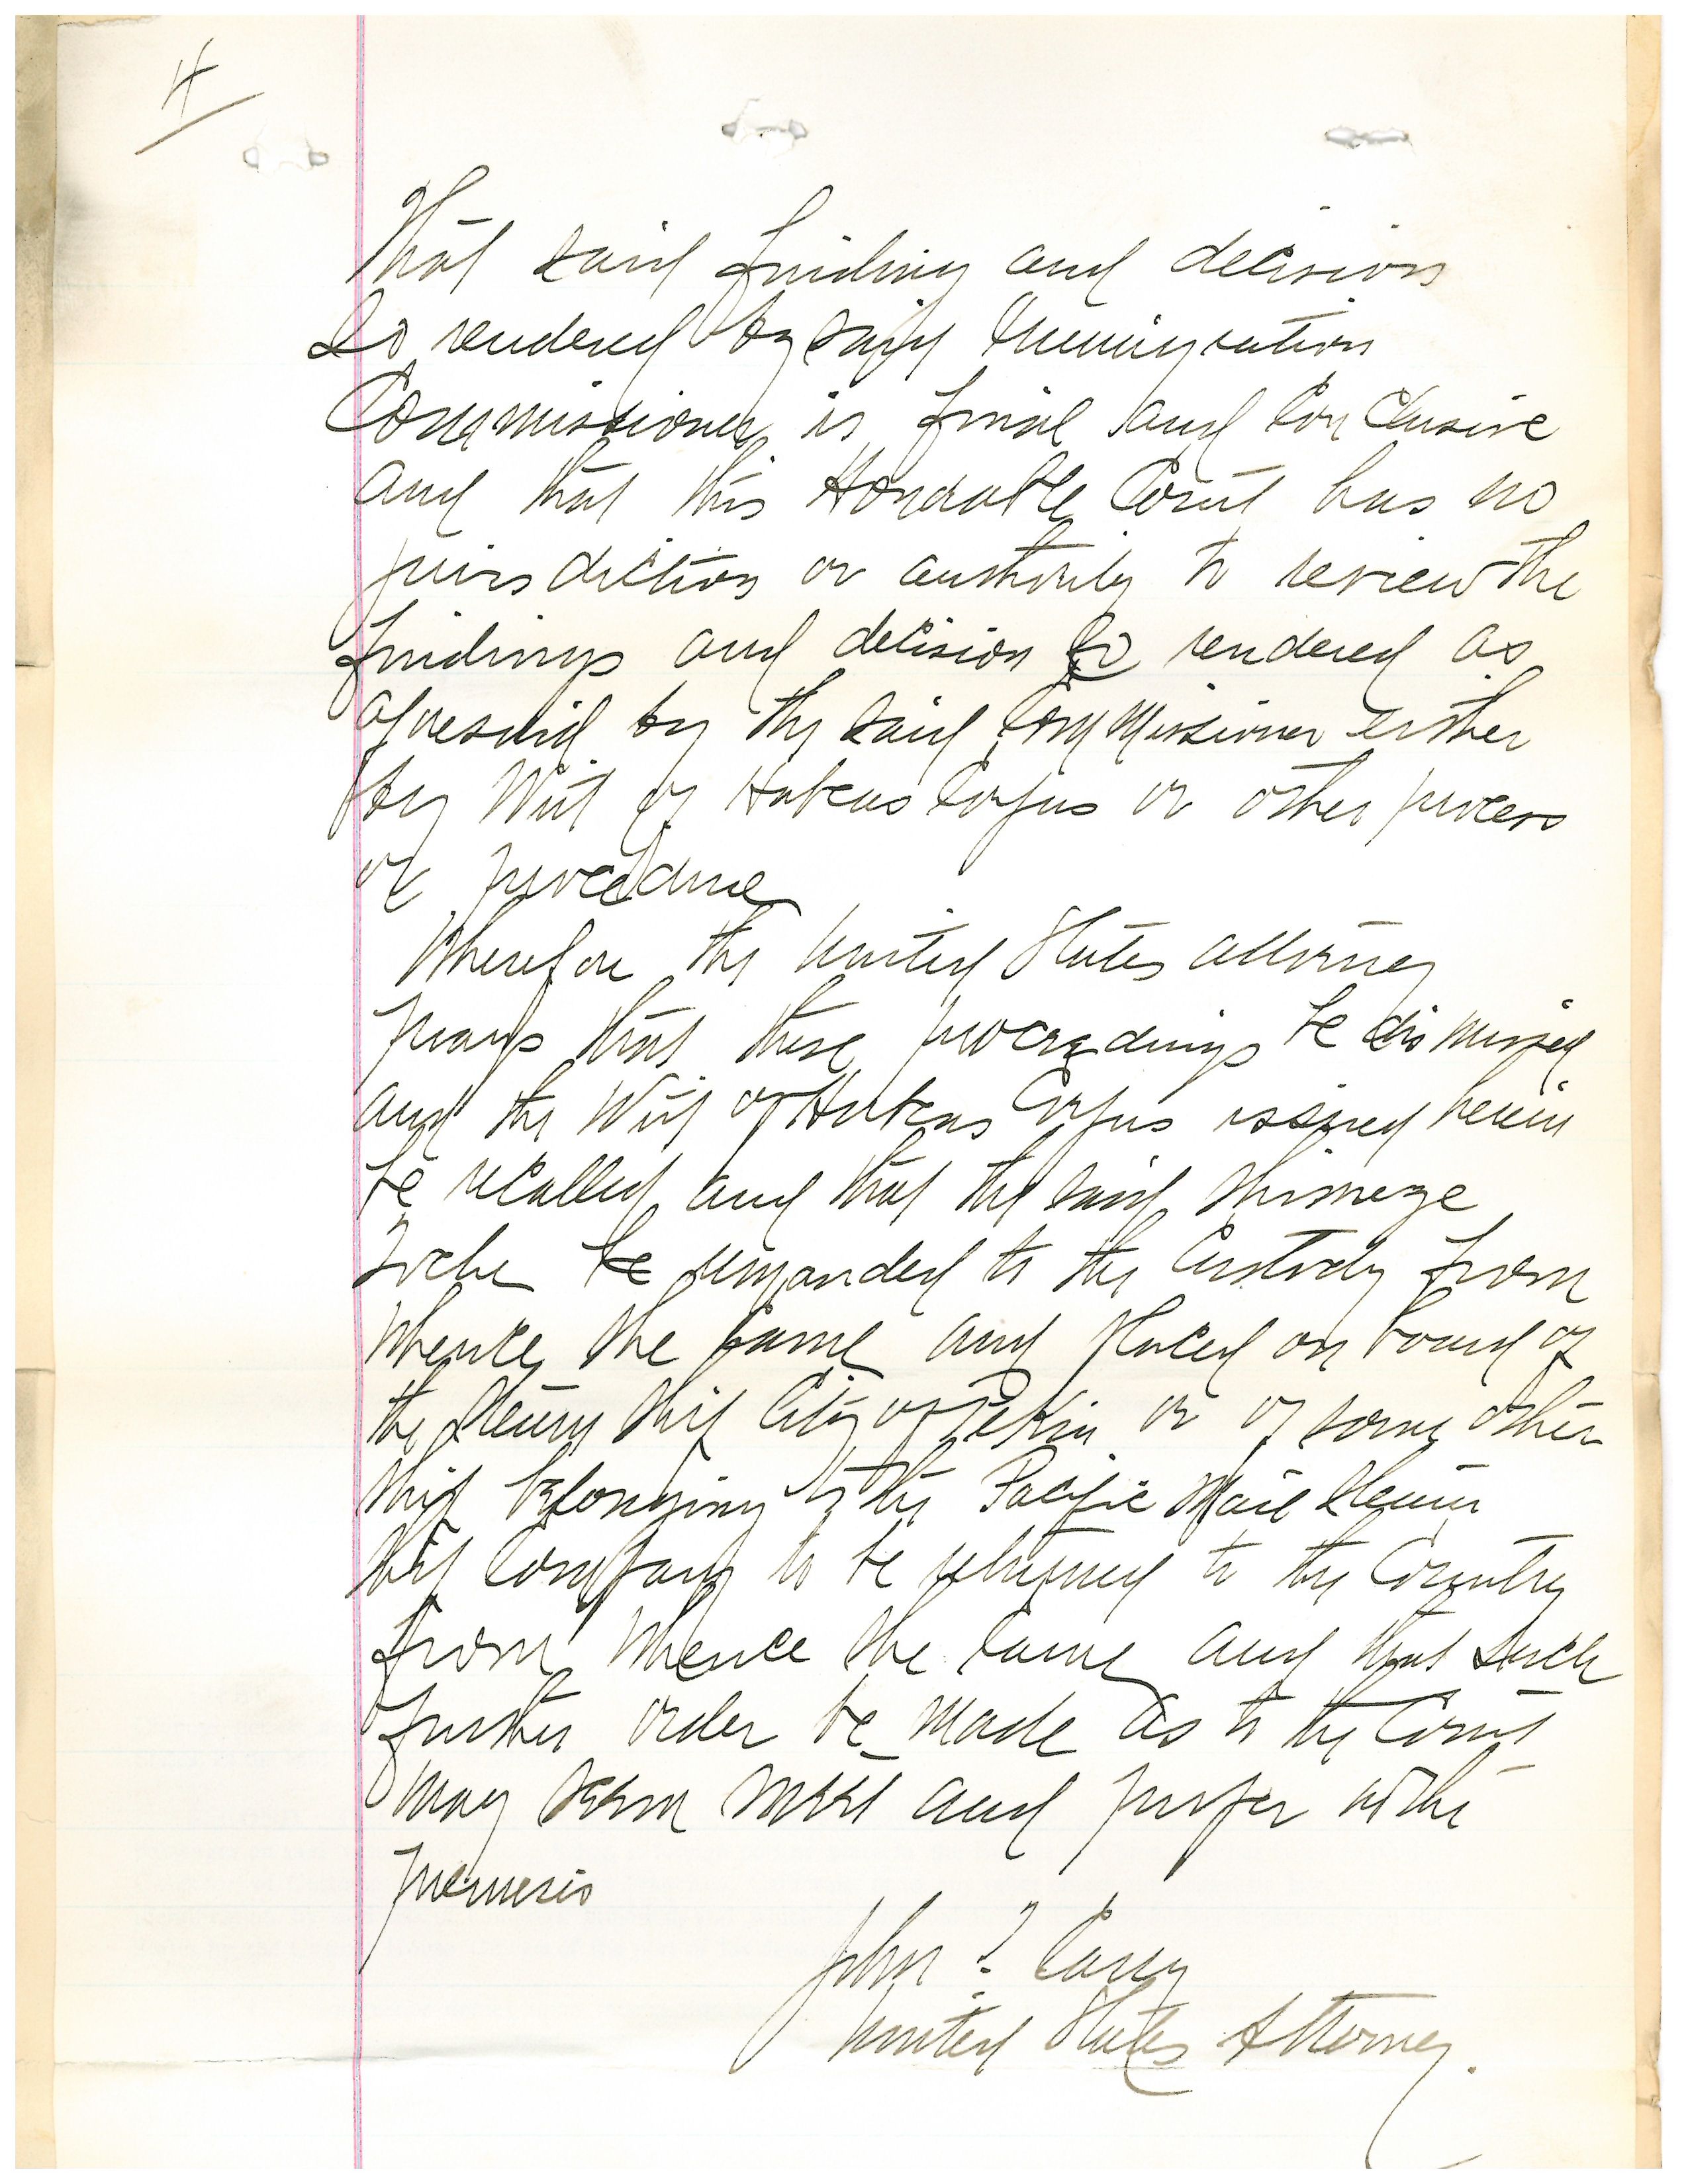 4
That said finding and decision
so rendered by said Immigration
Commissioner is final and conclusive
and that this Honorable Court has no
jurisdiction or authority to review the
findings and decision so rendered as
aforesaid by the said Commissioner either
by Writ of Habeas Corpus or other process
or procedure
Wherefore the United States attorney
prays that these proceedings be dismissed
and the Writ of Habeas Corpus issued herein
be recalled and that the said
be remanded to the custody from
whence she came and placed on board of
the steam ship City of Pekin or of some other
ship belonging to the Pacific Mail Steam
ship Company to be returned to the Country
from whence she came and that such
further order be made as to the Court
may seem meet and proper in the
premises
John
United States Attorney.